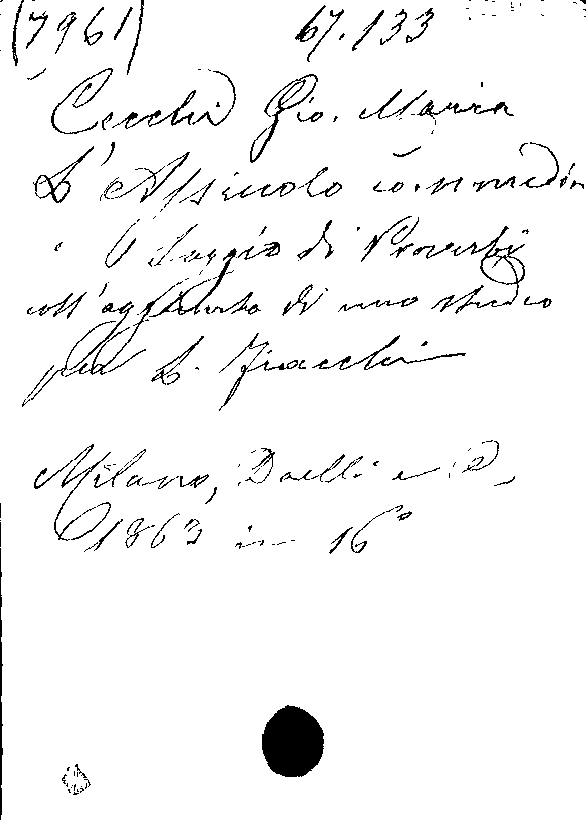 (7961) 67.133
Cecchi Gio. Maria
L'Assiuolo commedia
e Saggio di Proverbi
coll'aggiunta di uno studio
per L. Fiacchi
Milano, Daelli e C.,
1863 in 16°